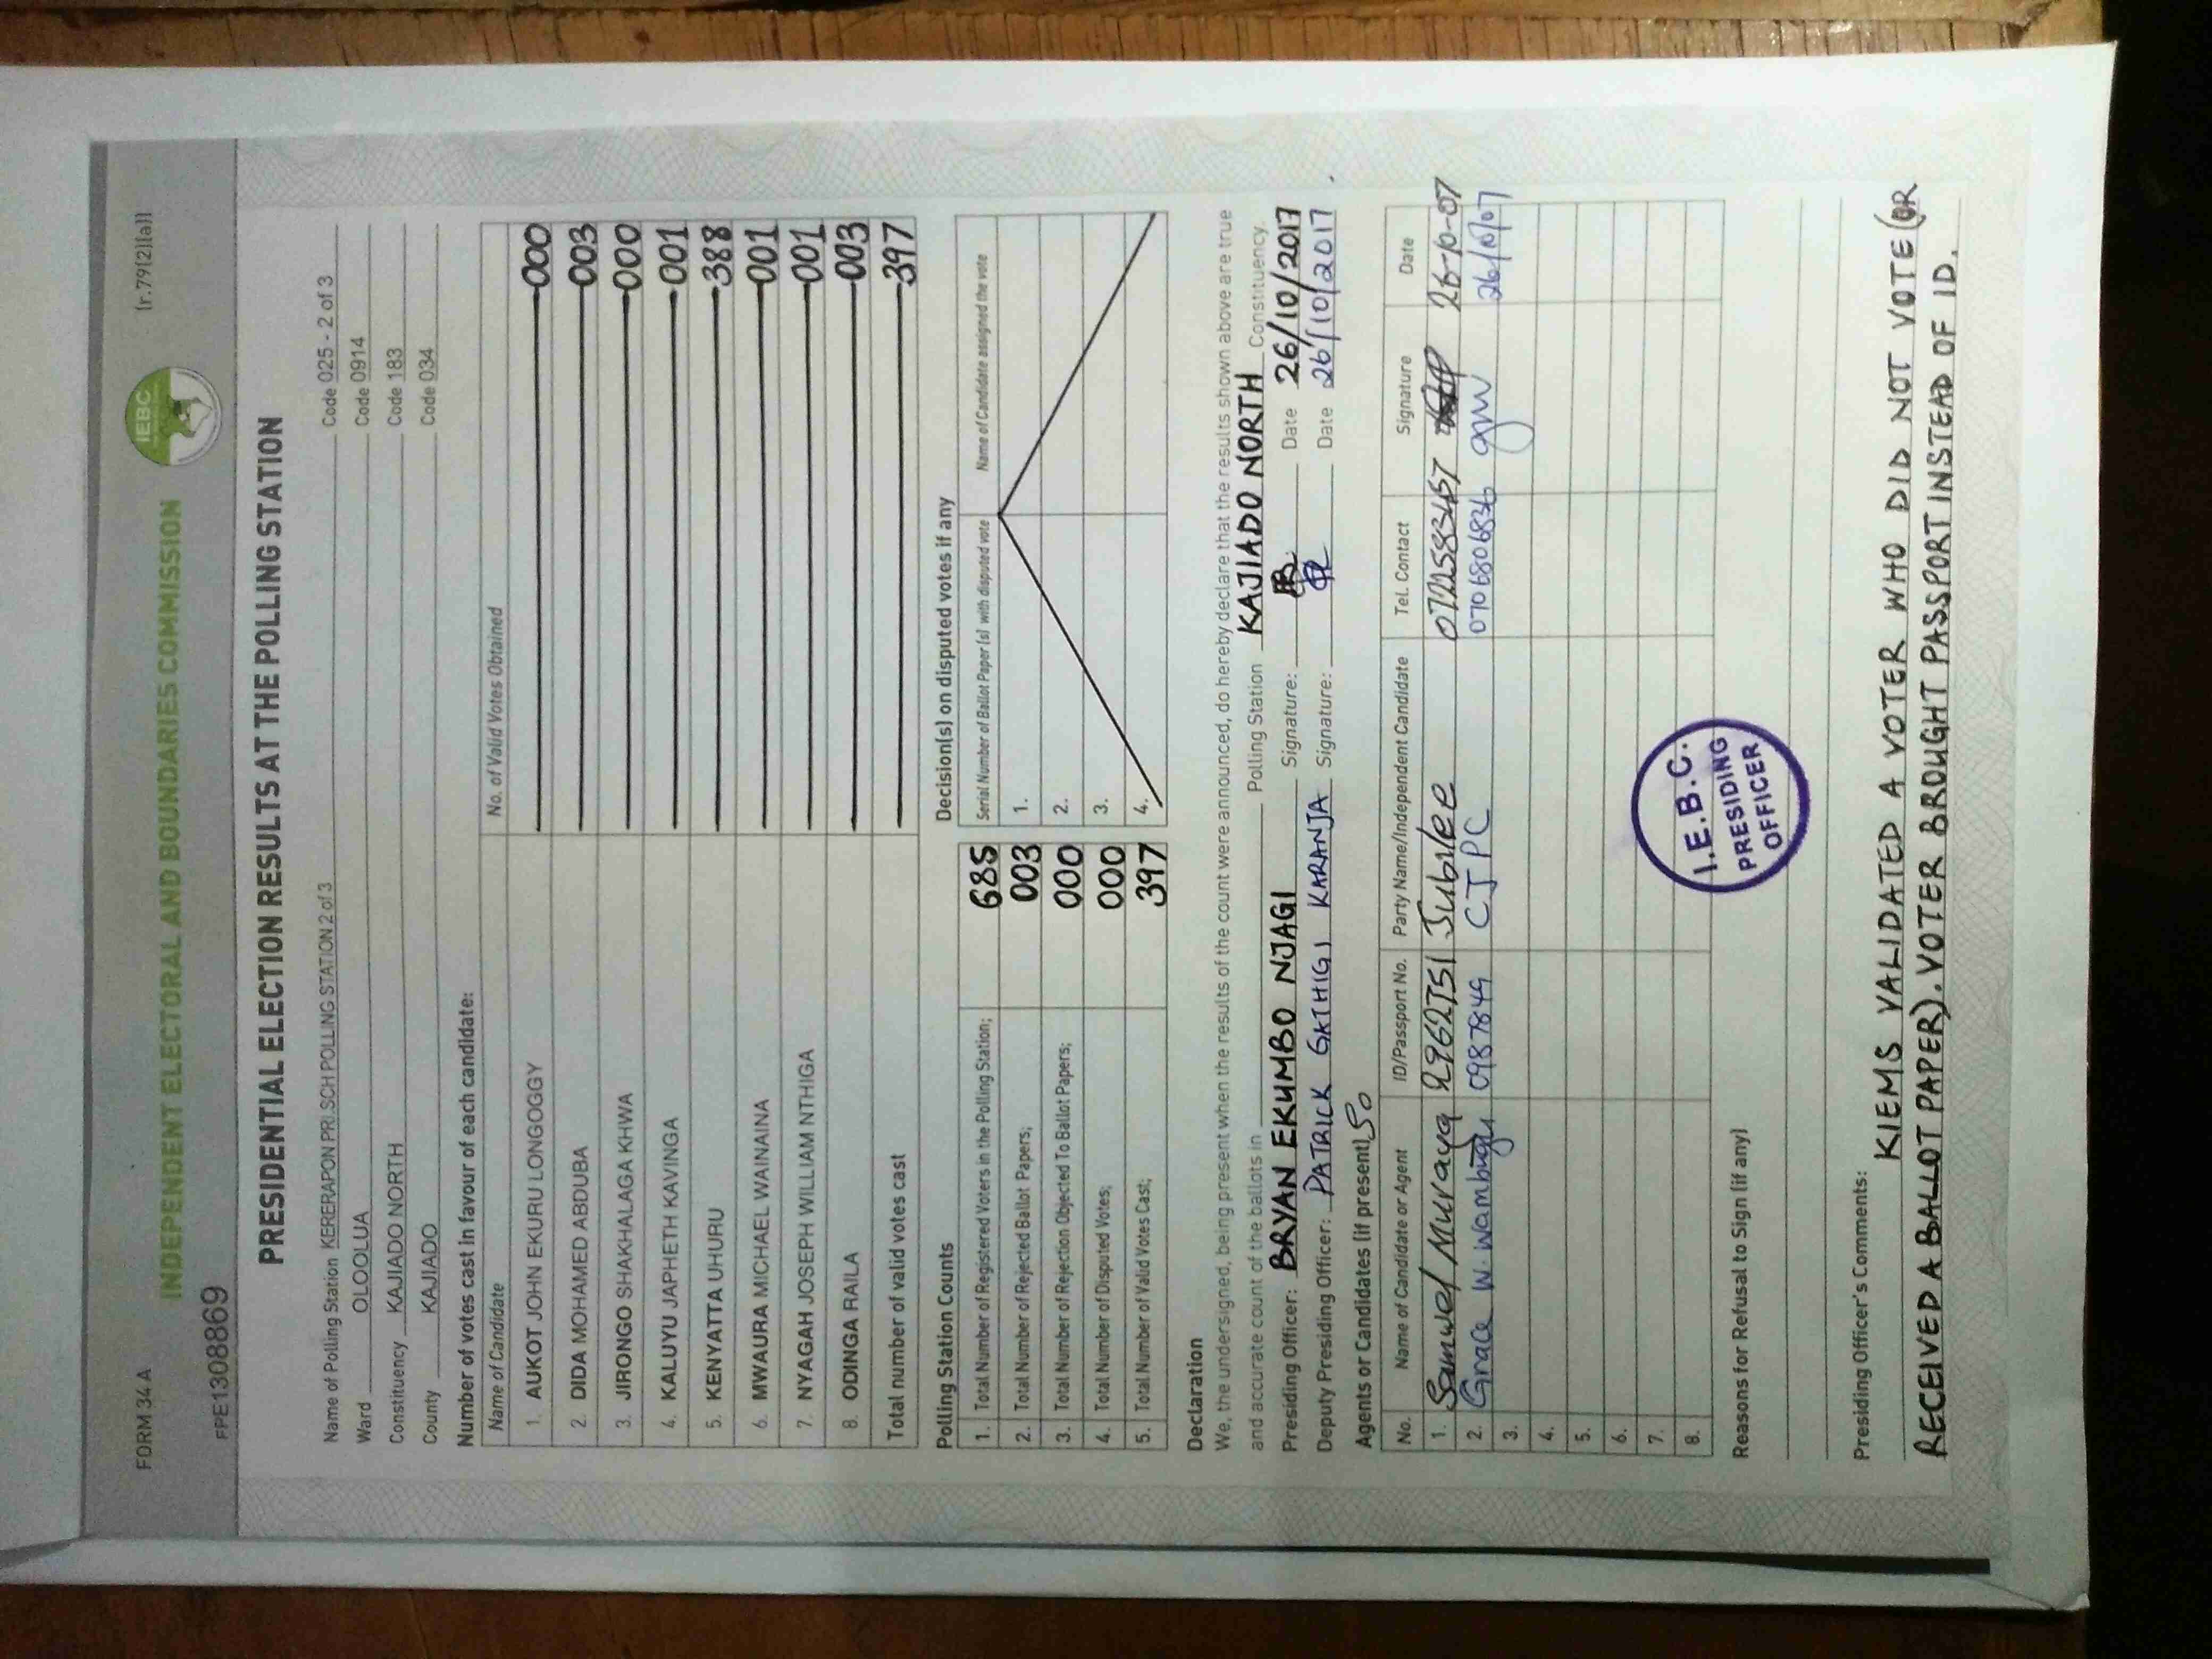 FORM 34 A
(r.79(2)(a))
INDEPENDENT ELECTORAL AND BOUNDARIES COMMISSION
IEBC
FPE1308869
PRESIDENTIAL ELECTION RESULTS AT THE POLLING STATION
Name of Polling Station KERERAPON PRI.SCH POLLING STATION 2 of 3 Code 025 - 2 of 3
Ward OLOOLUA Code 0914
Constituency KAJIADO NORTH Code 183
County KAJIADO Code 034
Number of votes cast in favour of each candidate:
Name of Candidate No. of Valid Votes Obtained
1. AUKOT JOHN EKURU LONGOGGY 000
2. DIDA MOHAMED ABDUBA 003
3. JIRONGO SHAKHALAGA KHWA 000
4. KALUYU JAPHETH KAVINGA 001
5. KENYATTA UHURU 388
6. MWAURA MICHAEL WAINAINA 001
7. NYAGAH JOSEPH WILLIAM NTHIGA 001
8. ODINGA RAILA 003
Total number of valid votes cast 397
Polling Station Counts
1. Total Number of Registered Voters in the Polling Station; 685
2. Total Number of Rejected Ballot Papers; 003
3. Total Number of Rejection Objected To Ballot Papers; 000
4. Total Number of Disputed Votes; 000
5. Total Number of Valid Votes Cast; 397
Decision(s) on disputed votes if any
Serial Number of Ballot Paper (s) with disputed vote Name of Candidate assigned the vote
1.
2.
3.
4.
Declaration
We, the undersigned, being present when the results of the count were announced, do hereby declare that the results shown above are true
and accurate count of the ballots in Polling Station KAJIADO NORTH Constituency.
Presiding Officer: BRYAN EKUMBO NJAGI Signature: Date 26/10/2017
Deputy Presiding Officer: PATRICK GATHIGI KARANJA Signature: Date 26/10/2017
Agents or Candidates (if present)
No. Name of Candidate or Agent ID/Passport No. Party Name/Independent Candidate Tel. Contact Signature Date
1. Samwel Muraya Jubilee 26-10-07
2. Grace W. Wambugu 0987849 CJPC 0706806836 gmw 26/10/07
3.
4.
5.
6.
7.
8.
I.E.B.C.
PRESIDING
OFFICER
Reasons for Refusal to Sign (if any)
Presiding Officer's Comments:
KIEMS VALIDATED A VOTER WHO DID NOT VOTE (OR
RECEIVED A BALLOT PAPER). VOTER BROUGHT PASSPORT INSTEAD OF ID.